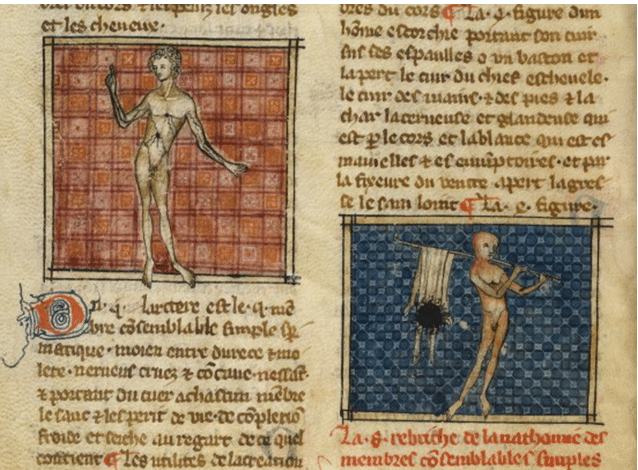 et les cheveux.
artere est le. q. me
bre cōsemblable simple sp
matique. moien entre durece & mo
lete. nerveus cruez & cōcave. nessāt.
& portant du cuer a chascun mēbre
le sanc & lesperit de vie. de cōplexiō
froide et seiche au regart de ce quel
contient ¶ Les utilites de la creation
dres du cors ¶ La .q. figure dun
hōme escorchie portant son cuir
sus ses espaulles o un baston et
la pert le cuir du chief eschevele.
le cuir des mains. & des pies & la
char lacerneuse et glandeuse qui
est p le cors et la blance qui est es
mamelles & es emūptoires. et par
la fixeure du ventre apert la gres
se le sain loint ¶ La .e. figure.
La .8. rebriche de la nathomie des
membres cōsemblables simples